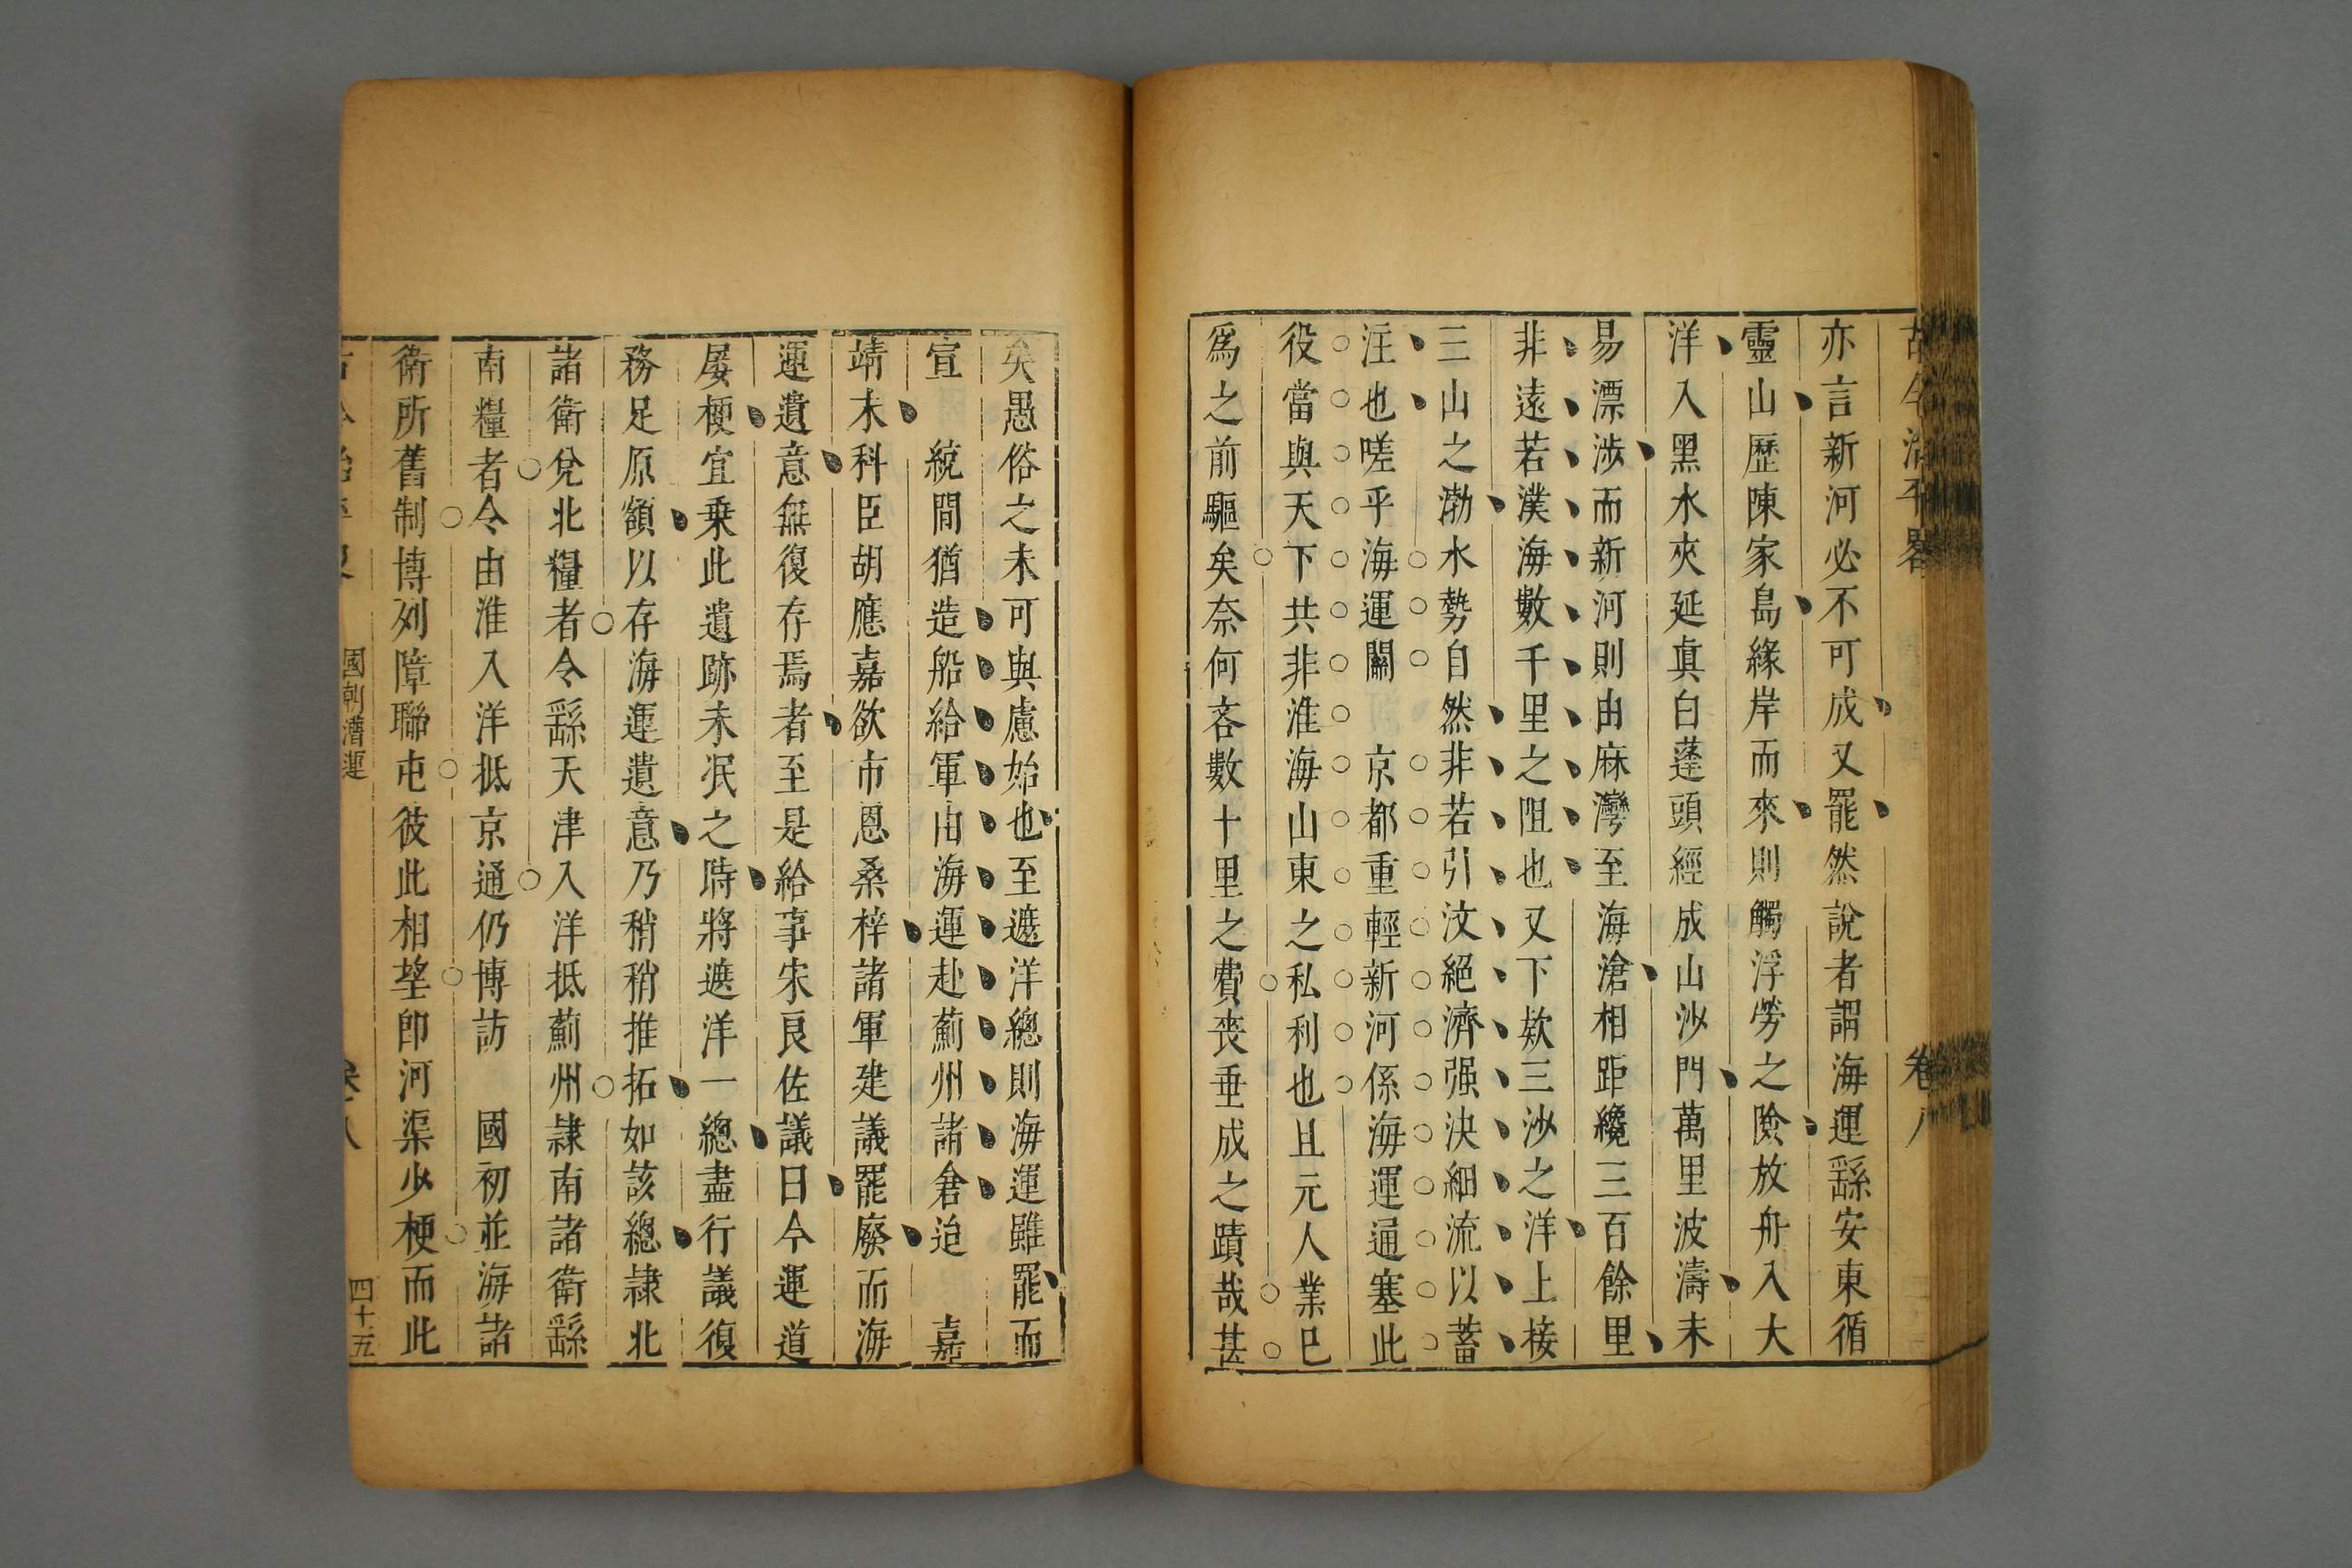 亦言新河必不可成又罷然說者謂海運繇安東循
靈山歷陳家島緣岸而來則觸浮勞之險放舟入大
洋入黑水夾延真白蓬頭經成山沙門萬里波濤未
易漂涉而新河則由麻灣至海滄相距纔三百餘里
非遠若漢海數千里之阻也又下欵三沙之洋上接
三山之渤水勢自然非若引汶絕濟强決細流以蓄
注也嗟乎海運關　京都重輕新河係海運通塞此
役當與天下共非淮海山東之私利也且元人業已
爲之前驅矣奈何吝數十里之費喪垂成之蹟哉甚
矣愚俗之未可與慮始也至遮洋總則海運雖罷而
宣　統間猶造船給軍由海運赴薊州諸倉迨　嘉
靖末科臣胡應嘉欲市恩桑梓諸軍建議罷廢而海
運遺意無復存焉者至是給事宋良佐議曰今運道
屡梗宜乗此遺跡未泯之時將遮洋一總盡行議復
務足原額以存海運遺意乃稍稍推拓如該總隷北
諸衛兌北糧者令繇天津入洋抵薊州隷南諸衛繇
南糧者令由淮入洋抵京通仍博訪　國初並海諸
衛所舊制博列障聯屯彼此相望卽河渠少梗而此
國朝漕運
四十五
卷八